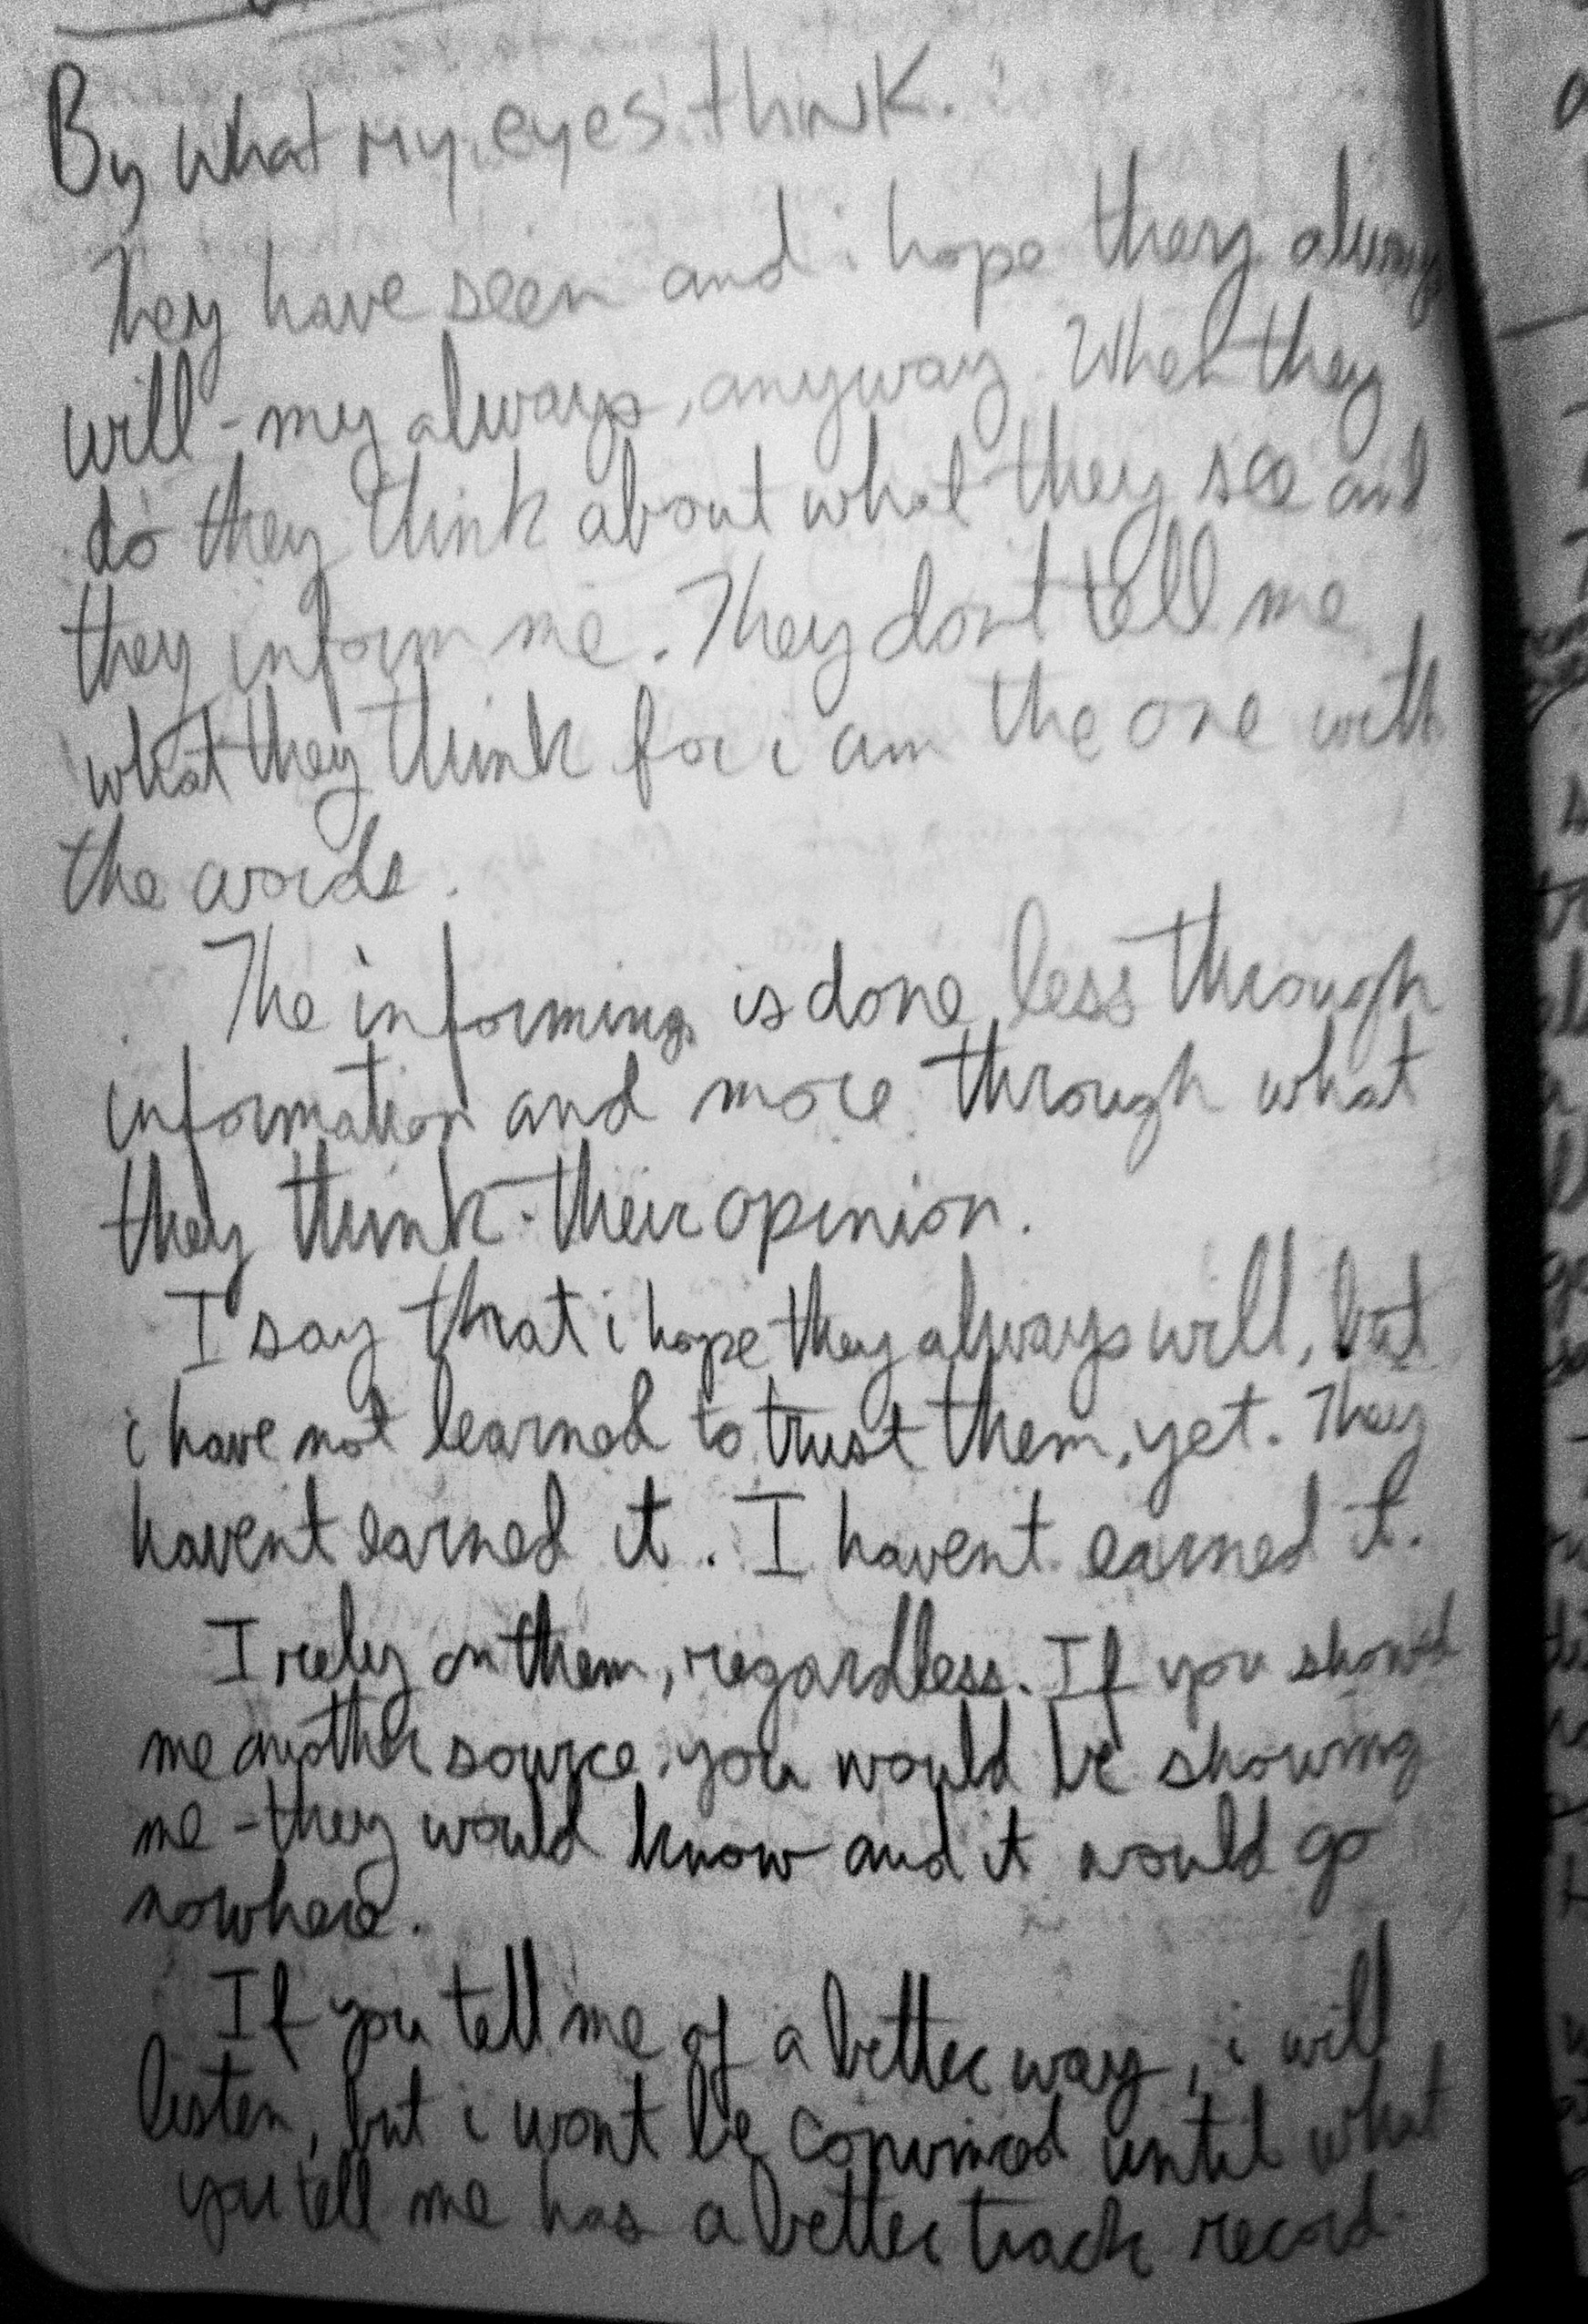 By what my eyes think.
They have seen and i hope they always
will - my always, anyway. What they
do they think about what they see and
they inform me. They dont tell me
what they think for i am the one with
the words.
The informing is done less through
information and more through what
they think - their opinion.
I say that i hope they always will, but
i have not learned to trust them, yet. They
havent earned it. I havent earned it.
I rely on them, regardless. If you showed
me another source, you would be showing
me - they would know and it would go
nowhere.
If you tell me of a better way, i will
listen, but i wont be convinced until what
you tell me has a better track record.